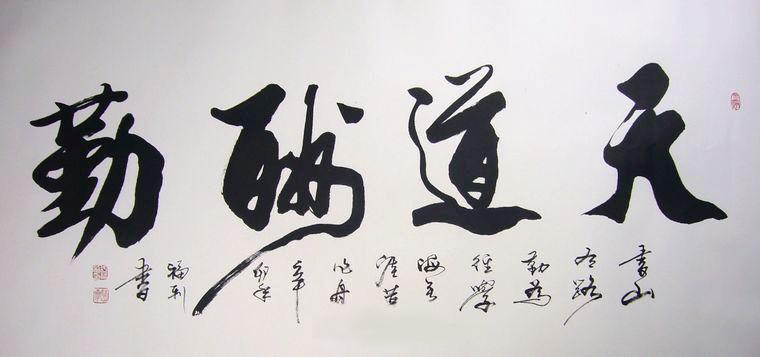 天道酬勤
書山
有路
勤為
徑學
海無
涯苦
作舟
辛
卯
福
書